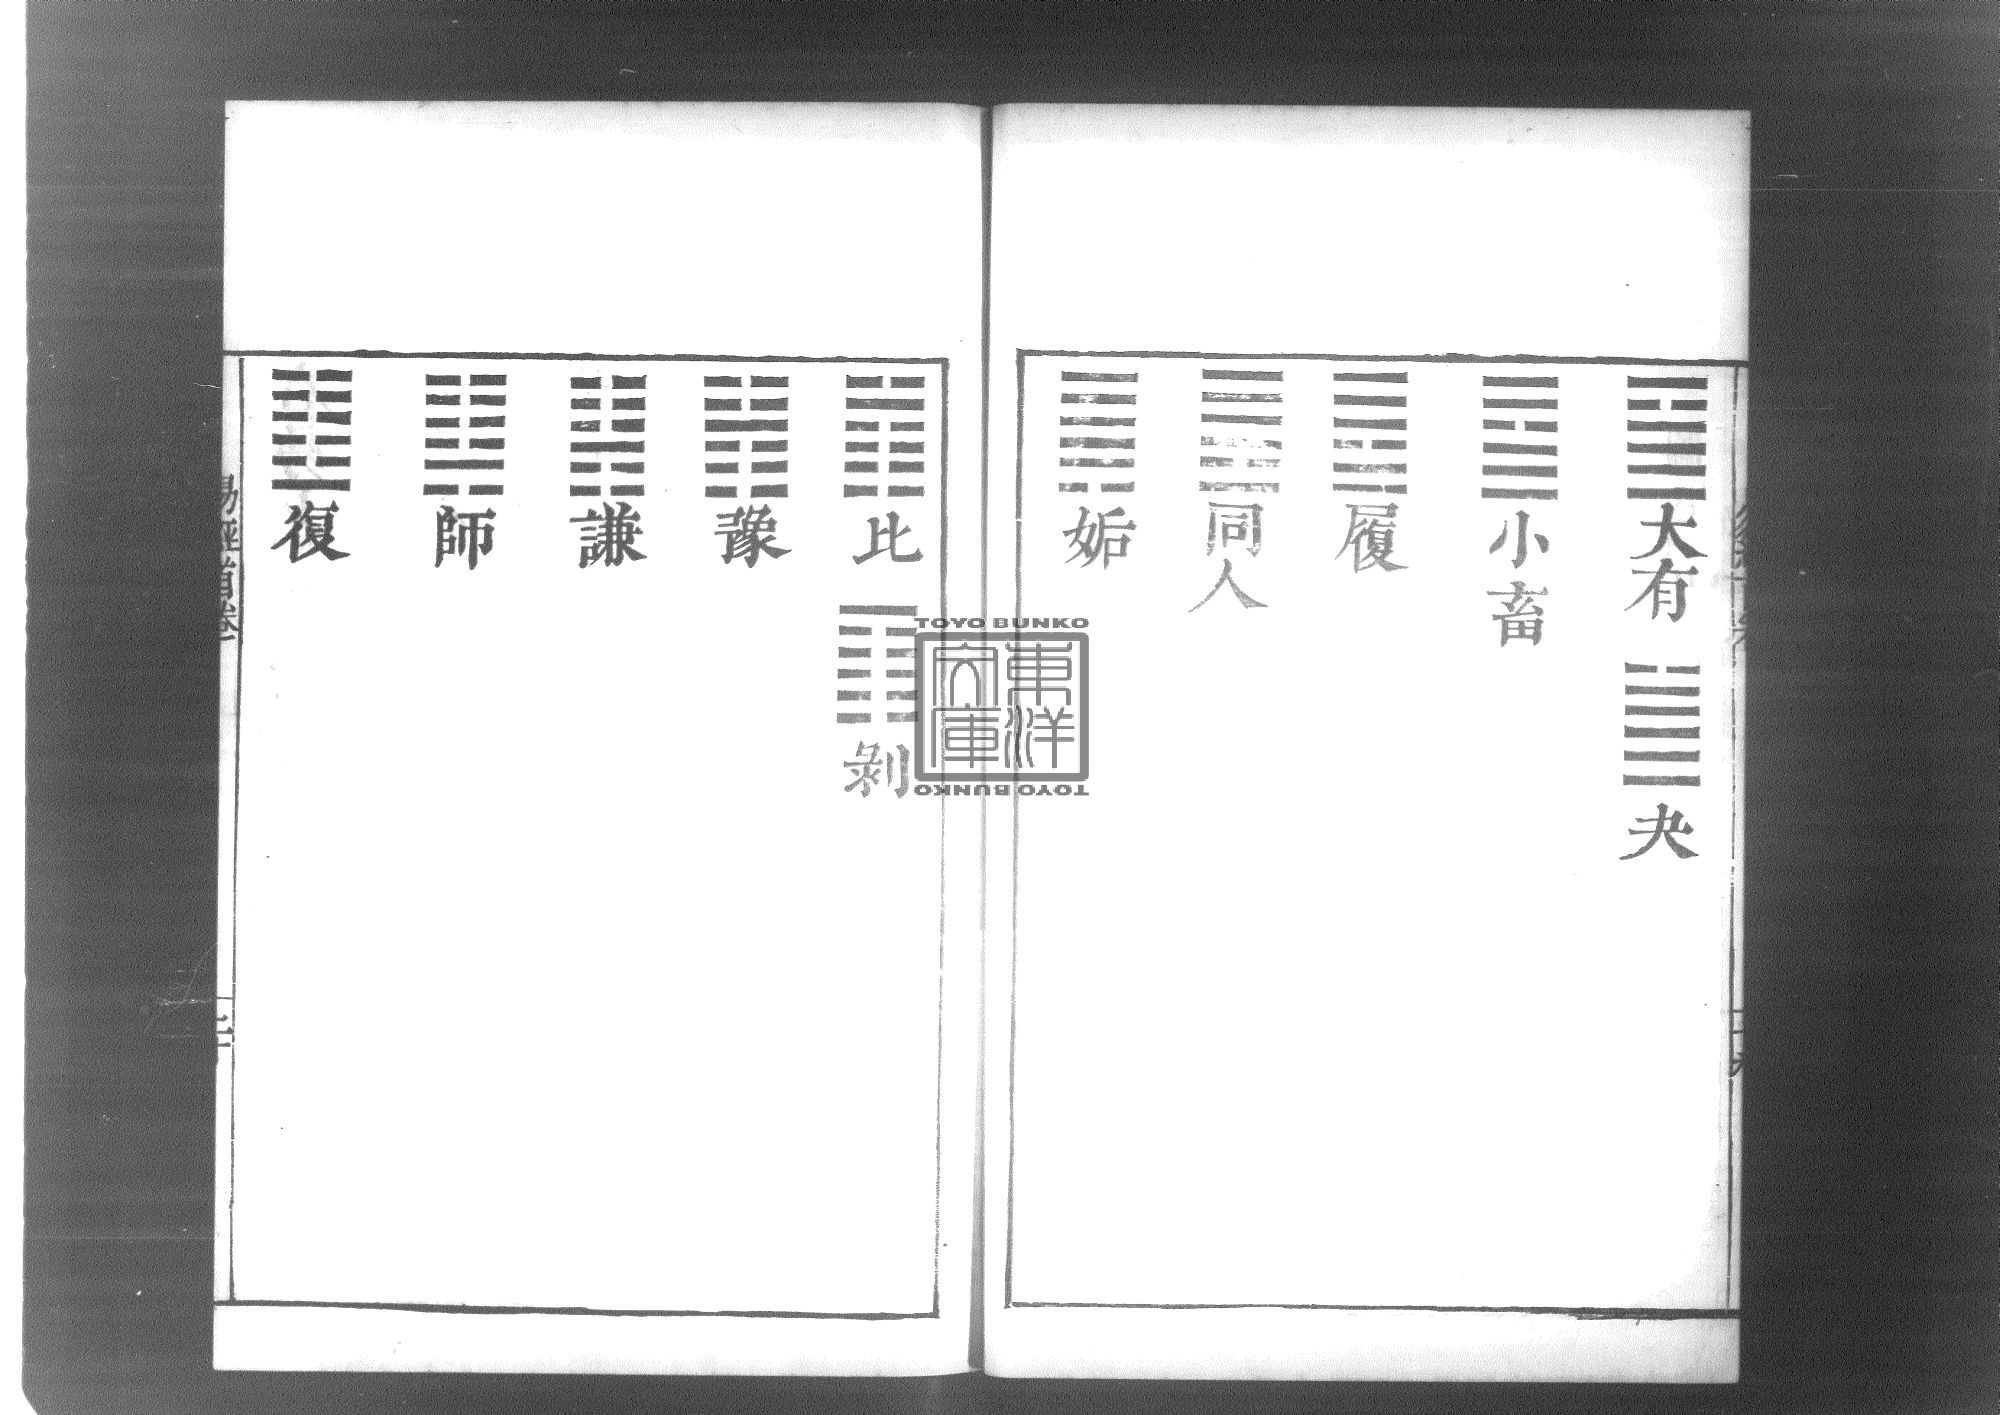 ䷍大有 ䷪夬
䷈小畜
䷉履
䷌同人
䷫姤
䷇比 ䷖剝
䷏豫
䷎謙
䷆師
䷗復
易經首卷
TOYO BUNKO
東洋
文庫
TOYO BUNKO